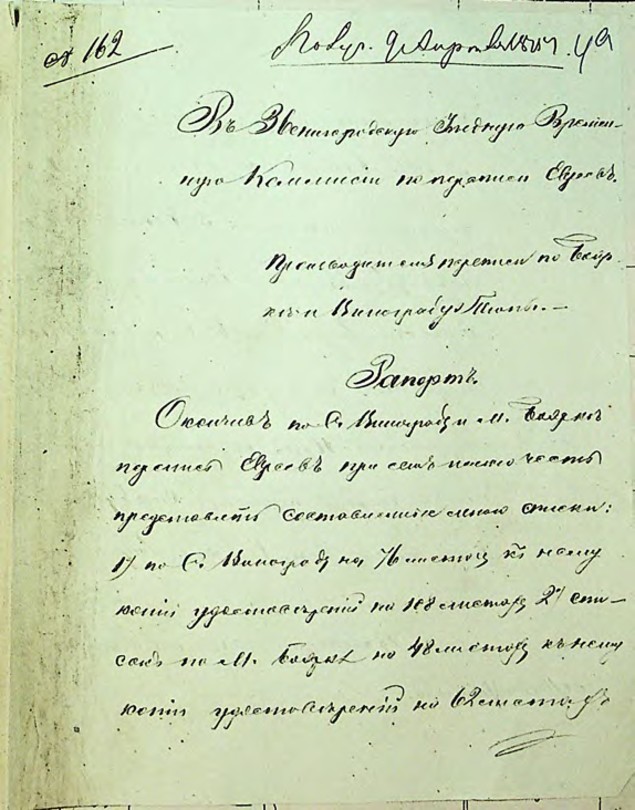 № 162
Въ Звенигородскую Уѣздную Времен-
ную Коммисію по переписи Евреевъ.
Производителя переписи по Бояр-
кѣ и Винограду
Рапортъ.
Окончивъ по С. Винограду и м. Бояркѣ
перепись Евреевъ при семъ имѣю честь
представить составленные мною списки:
1) по С. Винограду на 76 листахъ къ нему
копій удостовѣреній на 108 листахъ 2) спи-
сокъ по М. Бояркѣ на 48 листахъ къ нему
копій удостовѣреній на 62 листахъ